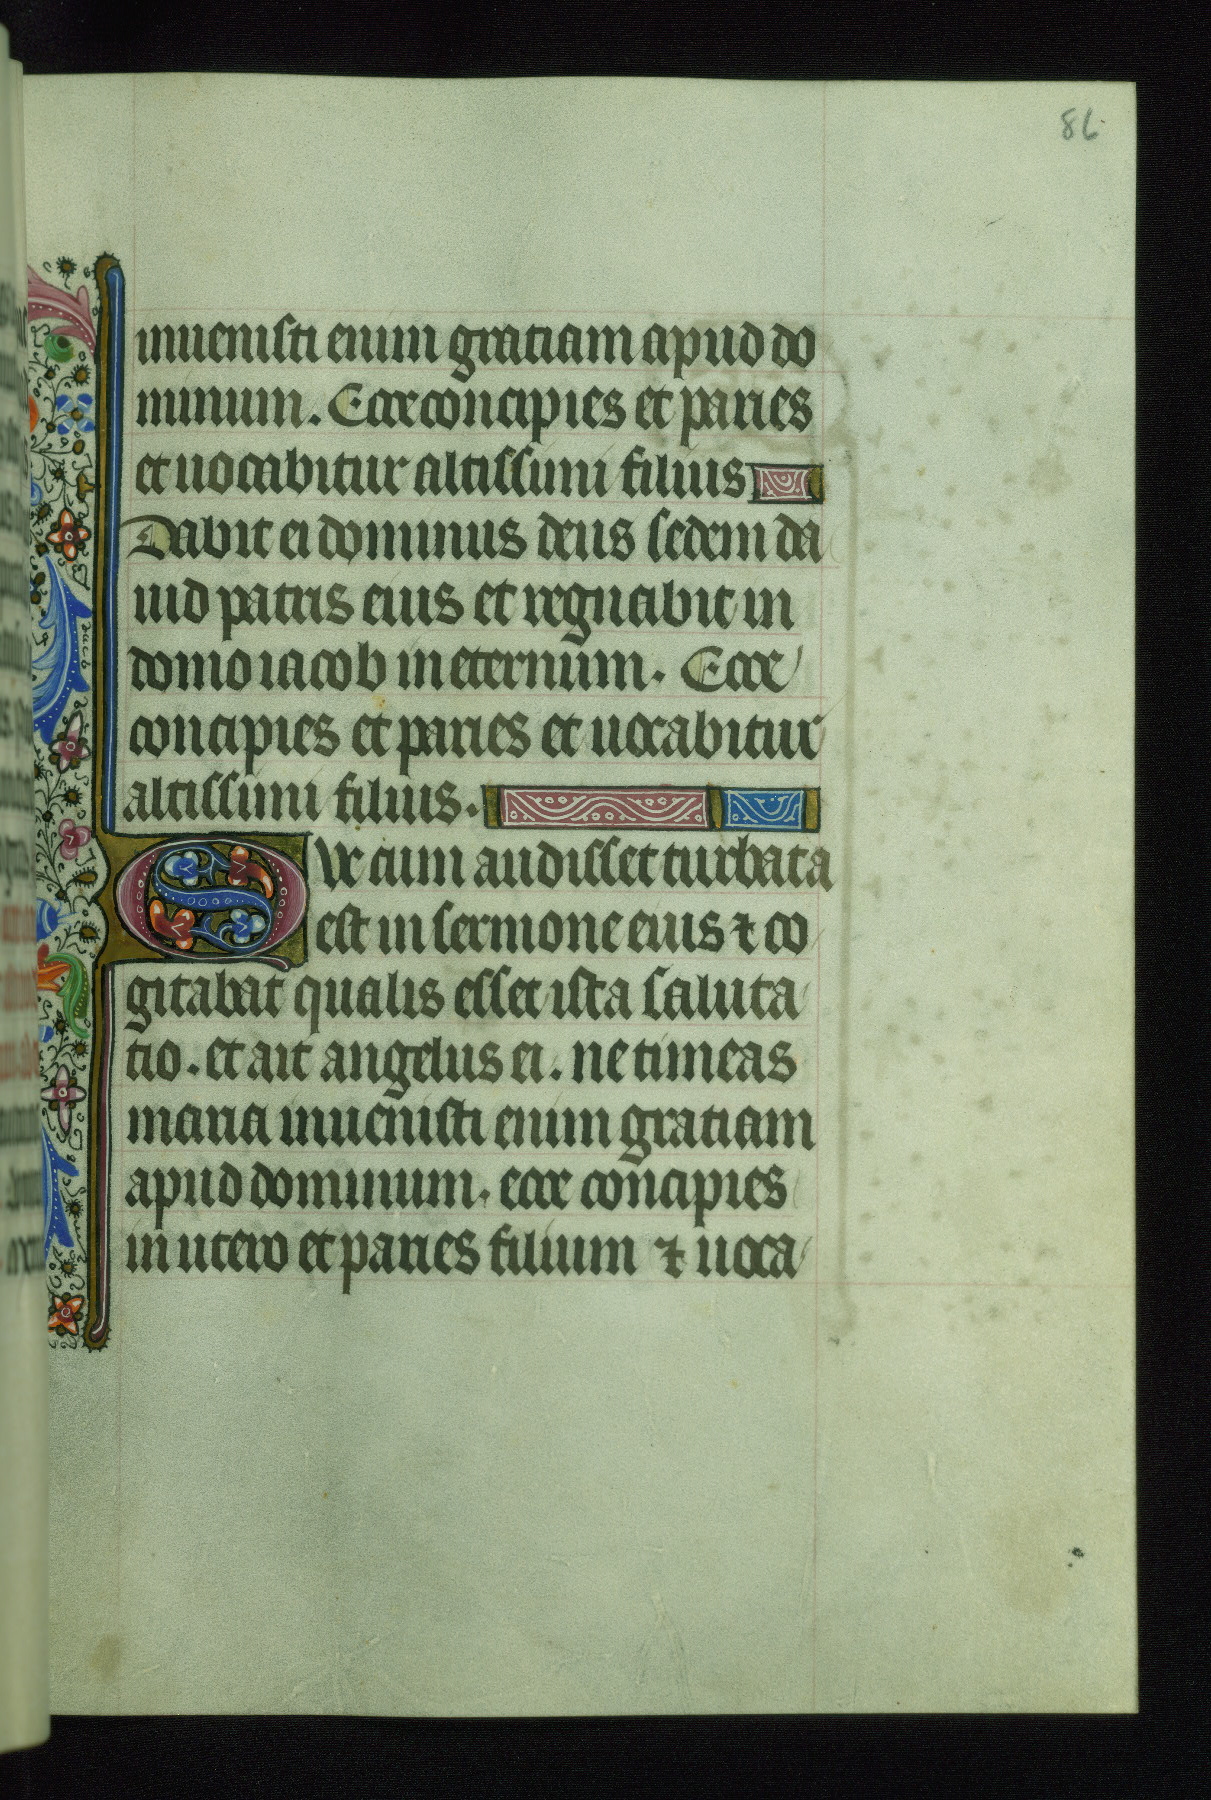 86
inuenisti enim gratiam apud do
minum. Ecce concipies et paries
et uocabitur altissimi filius
Dabit ei dominus deus sedem da
uid patris eius et regnabit in
domo iacob in eternum. Ecce
concipies et paries et uocabitur
altissimi filius.
Que cum audisset turbata
est in sermone eius ⁊ co
gitabat qualis esset ista saluta
tio. et ait angelus ei. ne timeas
maria inuenisti enim gratiam
apud dominum. ecce concipies
in utero et paries filium ⁊ uoca